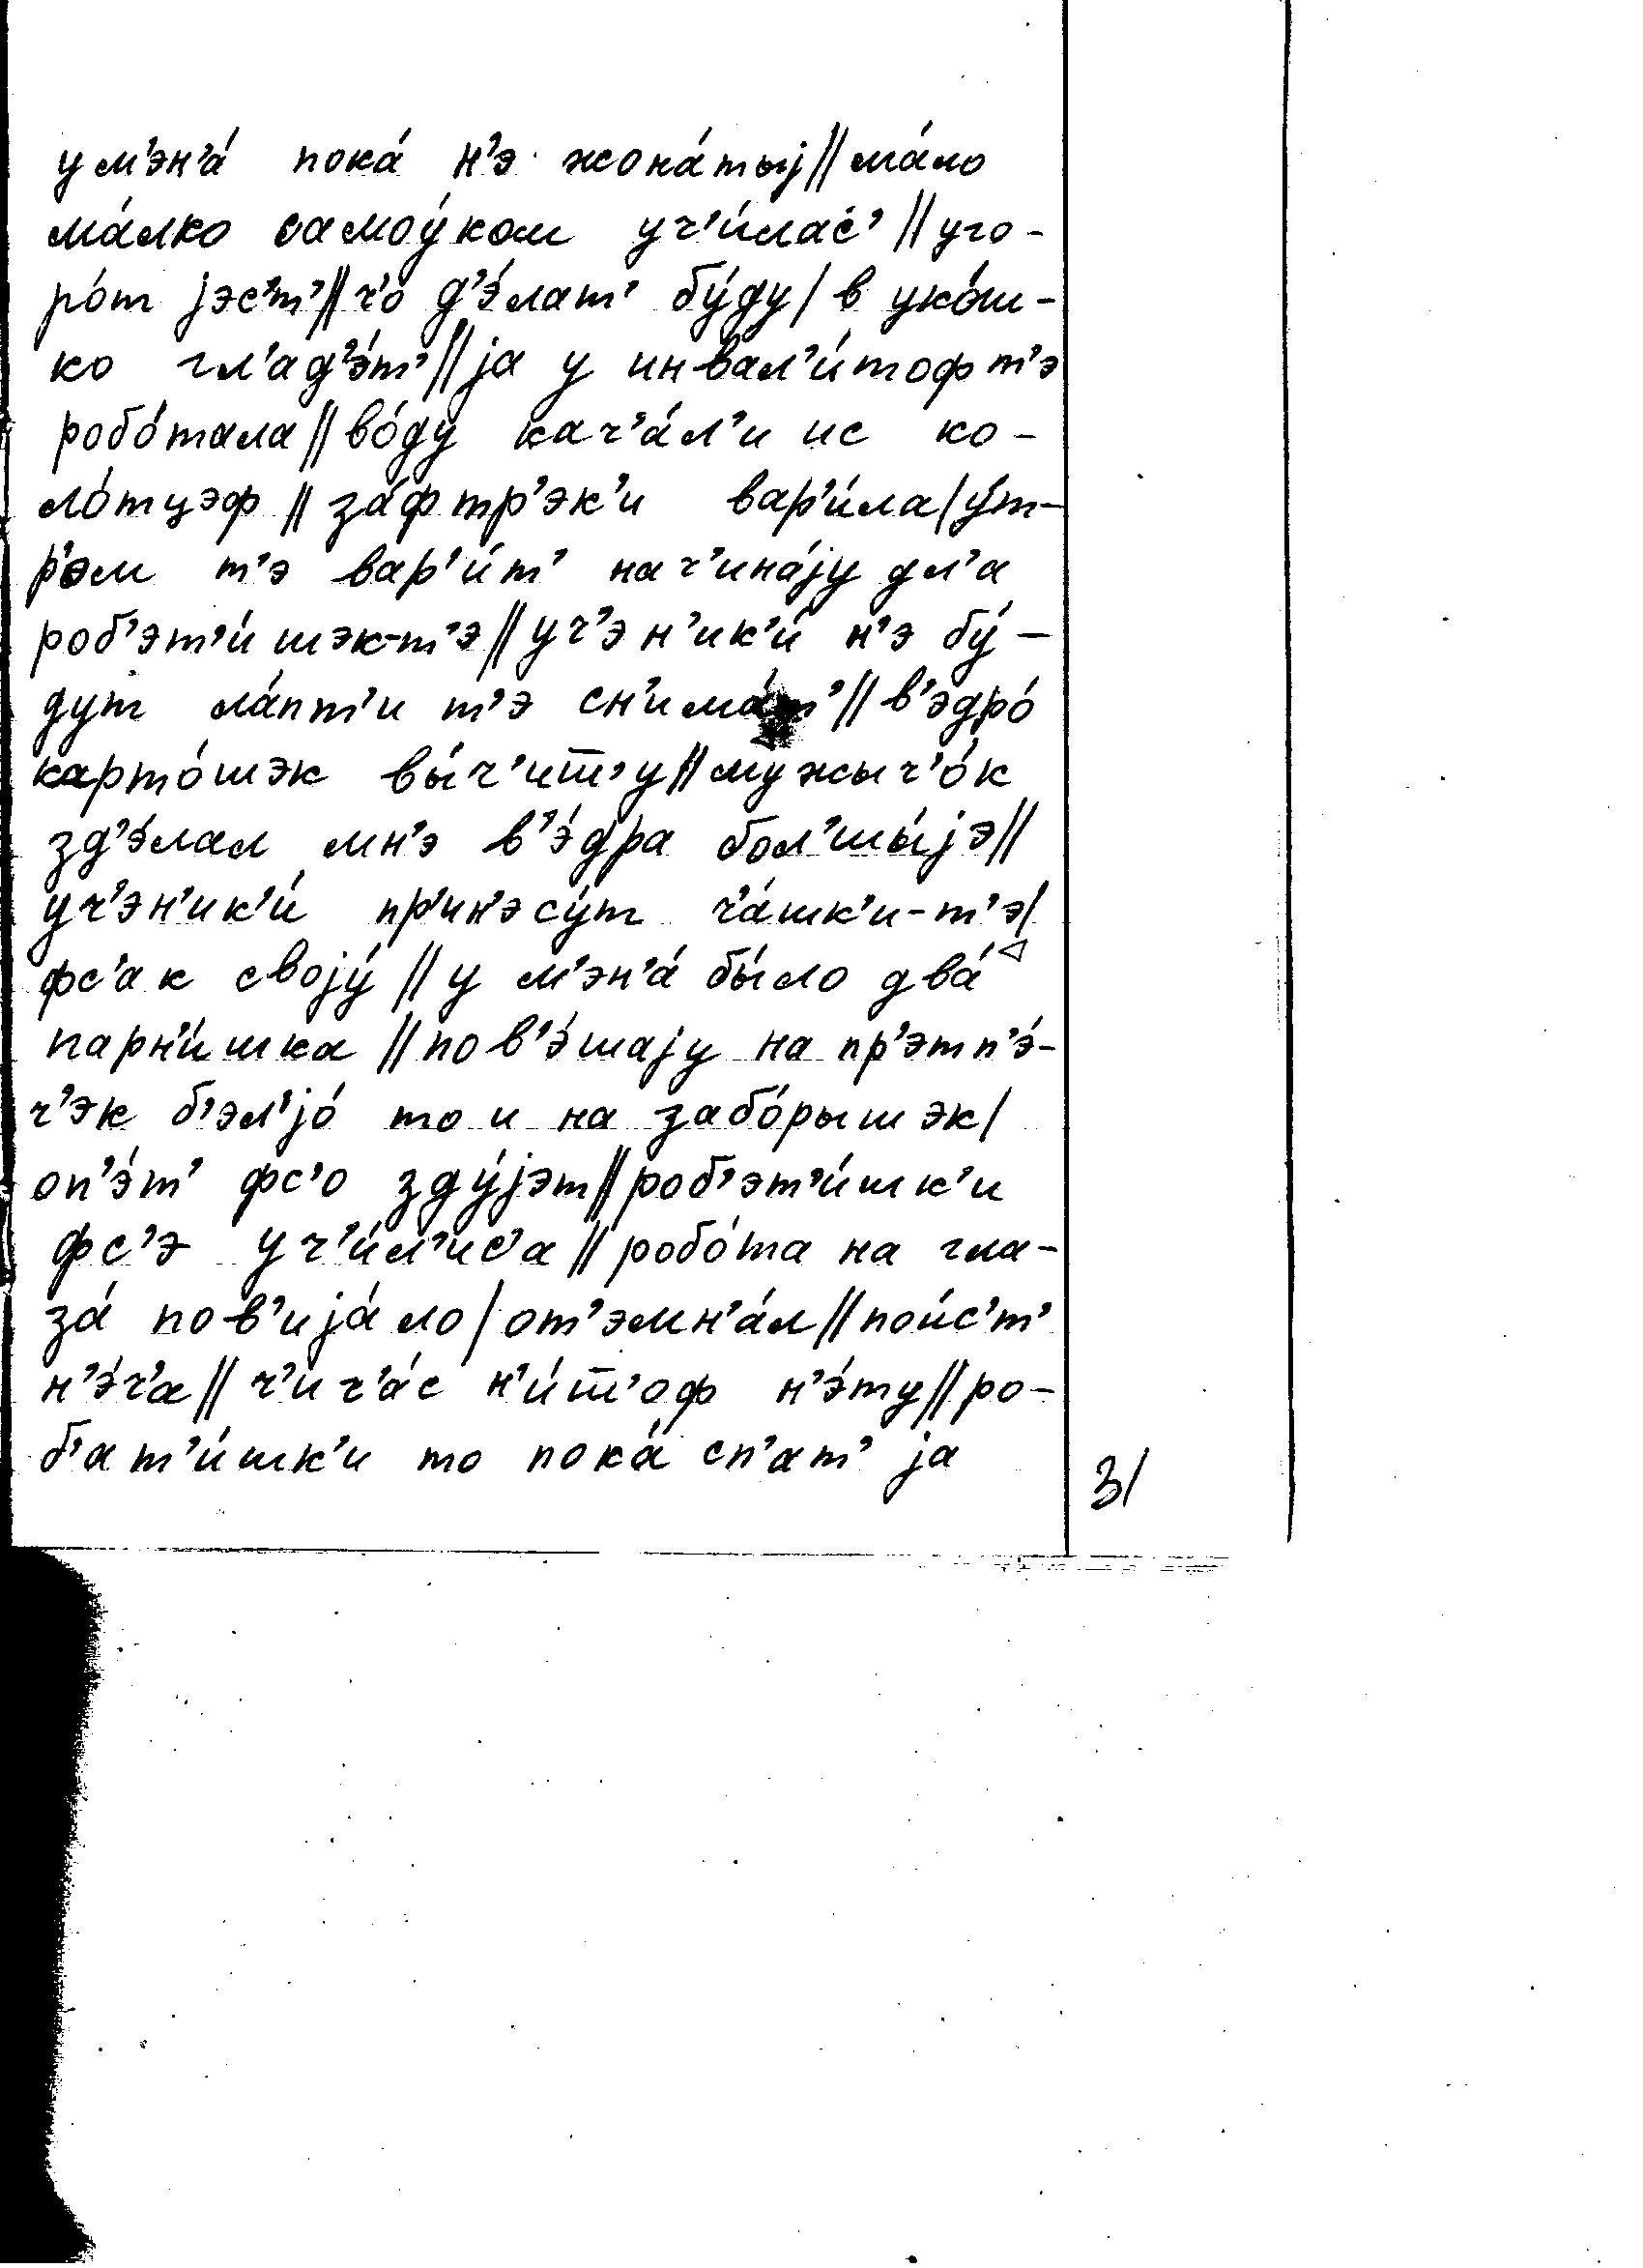 у м'эн'а́ пока́ н'э жона́тыj // ма́ло
ма́лко самоу́ком уч'и́лас' // уго-
ро́т jэс'т' // ч'о д'э́лат' бу́ду / в уко́ш-
ко гл'ад'э́т' // jа у инвал'и́тоф т'э
робо́тала // во́ду кач'а́л'и ис ко-
ло́тцэф // за́фтр'эк'и вар'и́ла / у́т-
р'ом т'э вар'и́т' нач'ина́jу дл'а
роб'эт'и́шэк-т'э // уч'эн'ик'и́ н'э бу́-
дут ла́пт'и т'э сн'има́т' // в'эдро́
карто́шэк вы́ч'ит̅'у // мужыч'о́к
зд'э́лал мн'э в'э́дра бол'шы́jэ //
уч'эн'ик'и́ пр'ин'эсу́т ч'а́шк'и-т'э /
фс'ак своjу́ // у м'эн'а́ бы́ло два́
парн'и́шка // пов'э́шаjу на пр'этп'э́-
ч'эк б'эл'jо́ то и на забо́рышэк /
оп'э́т' фс'о зду́jэт // роб'эт'и́шк'и
фс'э уч'и́л'ис'а // робо́та на гла-
за́ пов'иjа́ло / от'эмн'а́л // пои́с'т'
н'э́ч'а // ч'ич'а́с н'и́т̅'оф н'э́ту // ро-
б'ат'и́шк'и то пока́ сп'ат' jа
31